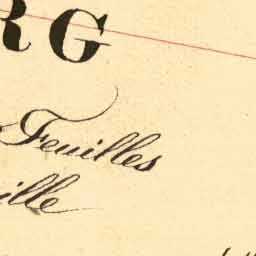 RG
Feuilles
ille